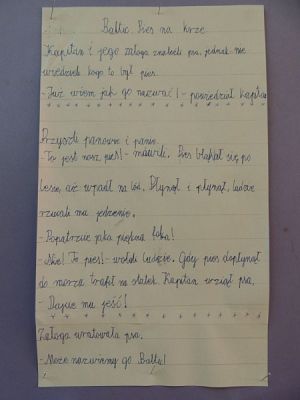 Baltic. Pies na krze
Kapitan i jego załoga znaleźli psa, jednak nie
wiedzieli kogo to był pies.
- Już wiem jak go nazwać! - powiedział kapitan
Przyszli panowie i panie.
- To jest nasz pies! - mówili. Pies błąkał się po
lesie, aż wpadł na lód. Płynął i płynął, ludzie
rzucali mu jedzenie.
- Popatrzcie jaka piękna foka!
- Nie! To pies! - wołali ludzie. Gdy pies dopłynął
do morza trafił na statek. Kapitan wziął psa.
- Dajcie mu jeść!
Załoga uratowała psa.
- Może nazwiemy go Baltic!